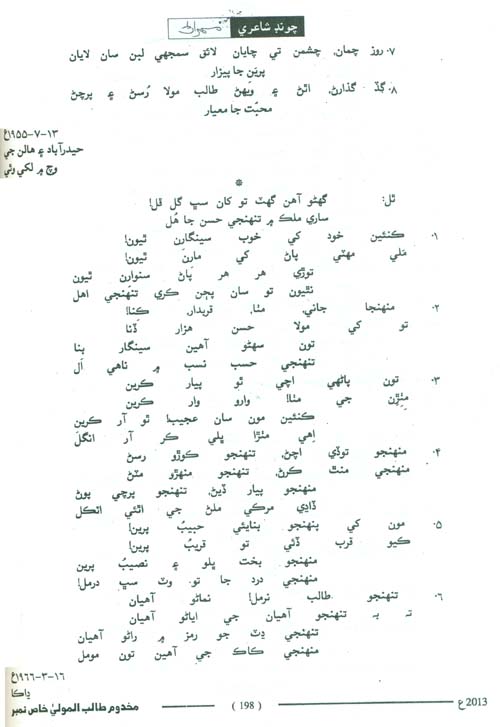 چونڊ شاعري مهراڻ
٧. روز چمان، چشمن تي چايان لائق سمجهي لبن سان لايان
پرين جا پيزار
٨. گڏ گذارڻ، اٿڻ ۽ ويهڻ طالب مولا رُسڻ ۽ پرچڻ
محبّت جا معيار
١٣-٧-١٩٥٥ع
حيدرآباد ۽ هالن جي
وچ ۾ لکي وئي
*
ٿل: گهڻو آهن گهٽ تو کان سڀ گل ڦل!
ساري ملڪ ۾ تنهنجي حسن جا هُل
١. ڪنئين خود کي خوب سينگارن ٿيون!
مَلي مهٽي پاڻ کي مارن ٿيون!
توڙي هر هر پاڻ سنوارن ٿيون
نٿيون تو سان پڄن ڪري تنهنجي اهل
٢. منهنجا جاني، مٺا، قربدار، ڪٺا!
تو کي مولا حسن هزار ڏنا
تون سهڻو آهين سينگار بنا
تنهنجي حسب نسب ۾ ناهي اَل
٣. تون پاڻهي اچي ٿو پيار ڪرين
مِٺڙن جي مٺا! وارو وار ڪرين
ڪنئين مون سان عجيب! ٿو آر ڪرين
اِهي مٺڙا ڀلي ڪر آر انگل
٤. منهنجو توڏي اچڻ، تنهنجو ڪوڙو رسڻ
منهنجي منٿ ڪرڻ، تنهنجو منهڙو مٽڻ
منهنجو پيار ڏيڻ، تنهنجو پرچي پوڻ
ڏاڍي مرڪي ملڻ جي اٿئي اٽڪل
٥. مون کي پنهنجو بنايئي حبيبُ پرين!
ڪيو قرب ڏئي تو قريبُ پرين!
منهنجو بخت ڀلو ۽ نصيبُ پرين
منهنجي درد جا تو وٽ سڀ درمل!
٦. تنهنجو طالب نرمل! نماڻو آهيان
تہ بہ تنهنجو آهيان جي اياڻو آهيان
تنهنجي ڊٽ جو رمز ۾ راڻو آهيان
منهنجي ڪاڪ جي آهين تون مومل
١٦-٣-١٩٦٦ع
ڍاڪا
2013 ع ( 198 ) مخدوم طالب الموليٰ خاص نمبر